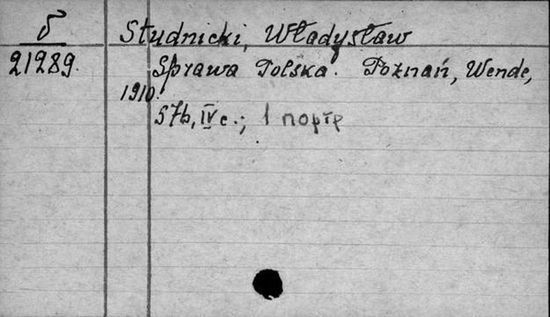 б
21289.
Studnicki, Władysław
Sprawa Polska. Poznań, Wende,
1910.
576, IV c.; 1 портр